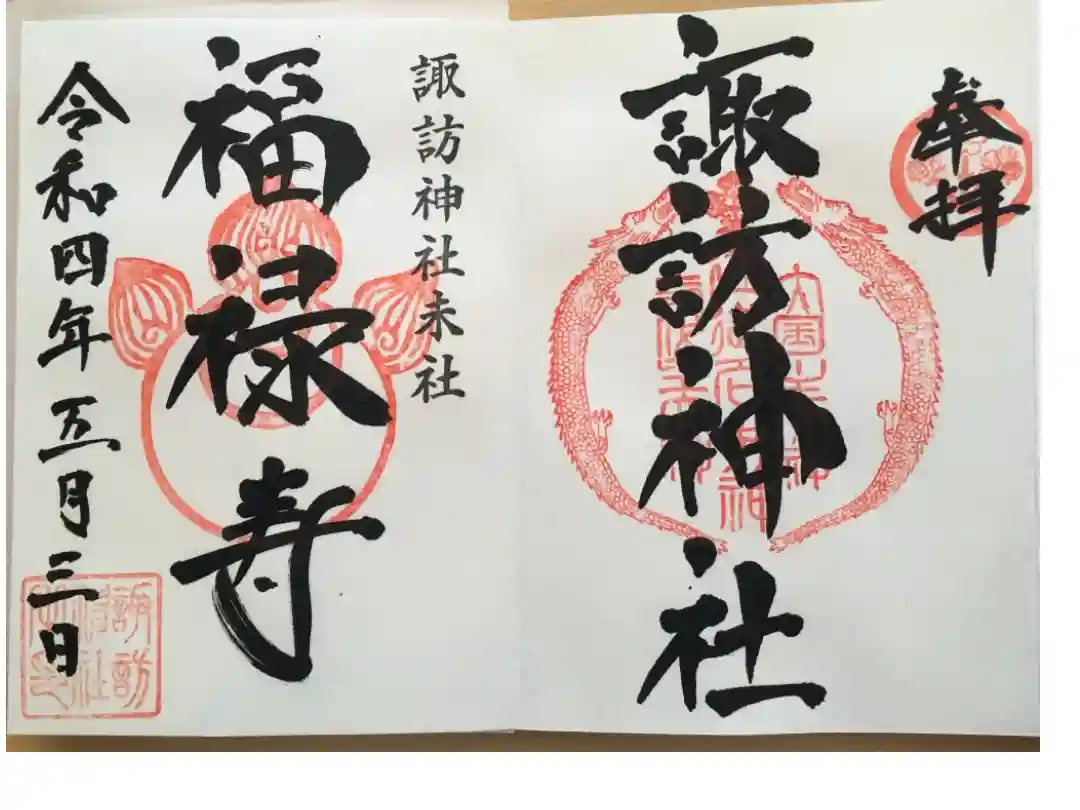 奉拝
諏訪神社
諏訪神社末社
福禄寿
令和四年五月三日
諏訪
神社
之印